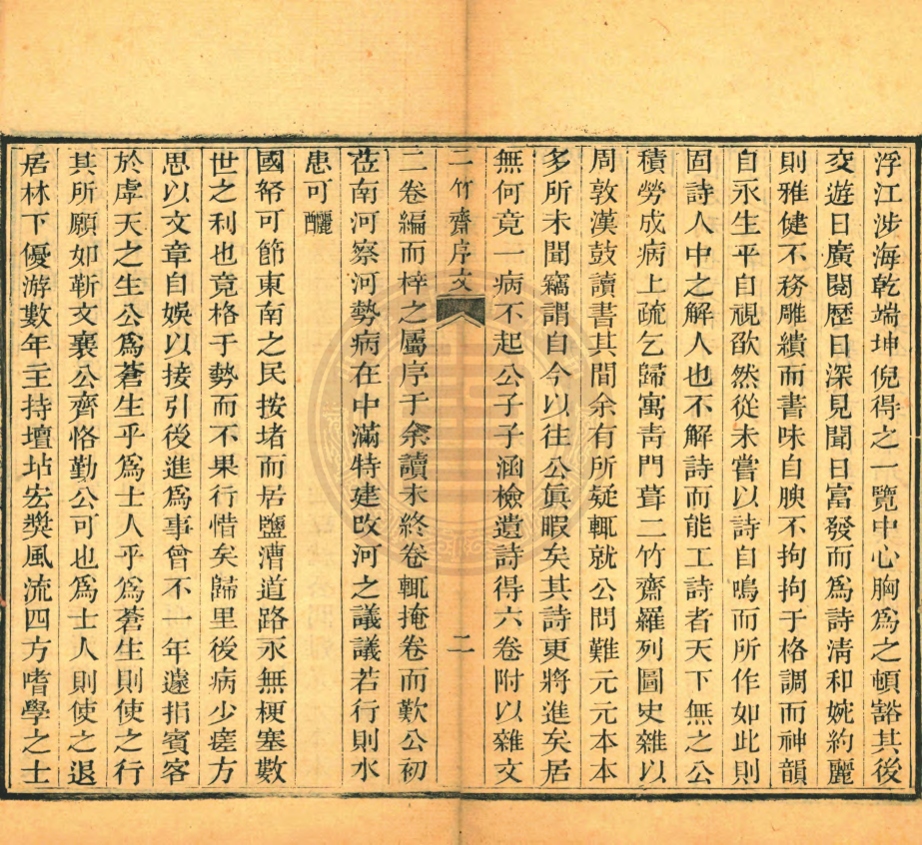 浮江涉海乾端坤倪得之一覽中心胸爲之頓豁其後
交遊日廣閱歷日深見聞日富發而爲詩淸和婉約麗
則雅健不務雕繢而書味自腴不拘拘于格調而神韻
自永生平自視欿然從未嘗以詩自鳴而所作如此則
固詩人中之解人也不解詩而能工詩者天下無之公
積勞成病上疏乞歸寓靑門葺二竹齋羅列圖史雜以
周敦漢鼓讀書其間余有所疑輒就公問難元元本本
多所未聞竊謂自今以往公眞暇矣其詩更將進矣居
無何竟一病不起公子子涵檢遺詩得六卷附以雜文
二竹齋序文 二
二卷編而梓之屬序于余讀未終卷輒掩卷而歎公初
莅南河察河勢病在中滿特建改河之議議若行則水
患可釃
國帑可節東南之民按堵而居鹽漕道路永無梗塞數
世之利也竟格于勢而不果行惜矣歸里後病少瘥方
思以文章自娛以接引後進爲事曾不一年遽捐賓客
於虖天之生公爲蒼生乎爲士人乎爲蒼生則使之行
其所願如靳文襄公齊恪勤公可也爲士人則使之退
居林下優游數年主持壇坫宏奬風流四方嗜學之士